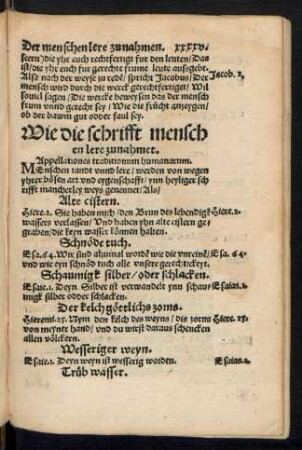 Der menschen lere zunahmen. xxxxv.
seern) die yhr euch rechtfertigt fur den leuten/ Das
ist/ die yhr euch fur gerechte frume leute ausgebt.
Also nach der weyse zu redē/ spricht Jacobus/ Der Jacob. 2,
mensch wird durch die werck gerechtfertiget/ Wil
souiel sagen/ Die wercke beweysen das der mensch
frum vnnd gerecht sey/ Wie die frücht anzeygen/
ob der bawm gut odder faul sey.
Wie die schrifft mensch
en lere zunahmet.
Appellationes traditionum humanarum.
MEnschen tandt vnnd lere/ werden von wegen
yhrer bösen art vnd eygenschafft/ ynn heyliger sch
rifft mancherley weys genennet/ Als/
Alte cistern.
Hiere. 2. Sie haben mich/ den Brun des lebendigē Hiere. 2.
wassers verlassen/ Vnd haben yhn alte cistern ge
graben/ die keyn wasser können halten.
Schnöde tuch.
Esa. 64. Wir sind alzumal wordē wie die vnreinē/ Esa. 64.
vnd wie eyn schnöd tuch alle vnsere gerechtickeyt.
Schaumigk silber/ oder schlacken.
Esaie. 1. Deyn Silber ist verwandelt ynn schau/ Esaias. 1.
migk silber odder schlacken.
Der kelch göttlichs zorns.
Hieremi. 25. Nym den kelch des weyns/ dis zorns Hiere. 25.
von meyner hand/ vnd du wirst daraus schencken
allen völckern.
Wesseriger weyn.
Esaie. 1. Deyn weyn ist wesserig worden. Esaias. 1.
Trüb wasser.